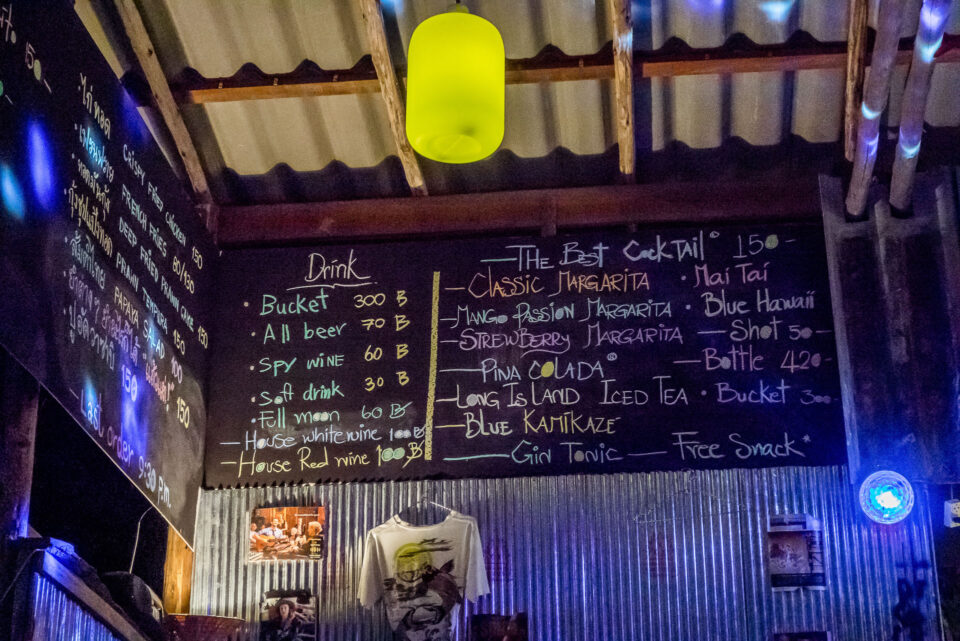 150-
ไก่ทอด CRISPY FRIED CHICKEN 150
FRENCH FRIES 80/130
DEEP FRIED PRAWN CAKE 150
PRAWN TEMPURA 150
ส้มตำไทย PAPAYA SALAD 100
150
150
Last order 9:30 p.m.
Drink
Bucket 300 B
All beer 70 B
SPY wine 60 B
Soft drink 30 B
Full moon 60 B
House white wine 100 B
House Red wine 100 B
The Best Cocktail 150-
Classic Margarita
Mango Passion Margarita
Strewberry Margarita
Pina Colada
Long Island Iced Tea
Blue Kamikaze
Gin Tonic
Mai Tai
Blue Hawaii
Shot 50-
Bottle 420-
Bucket 300-
Free Snack*